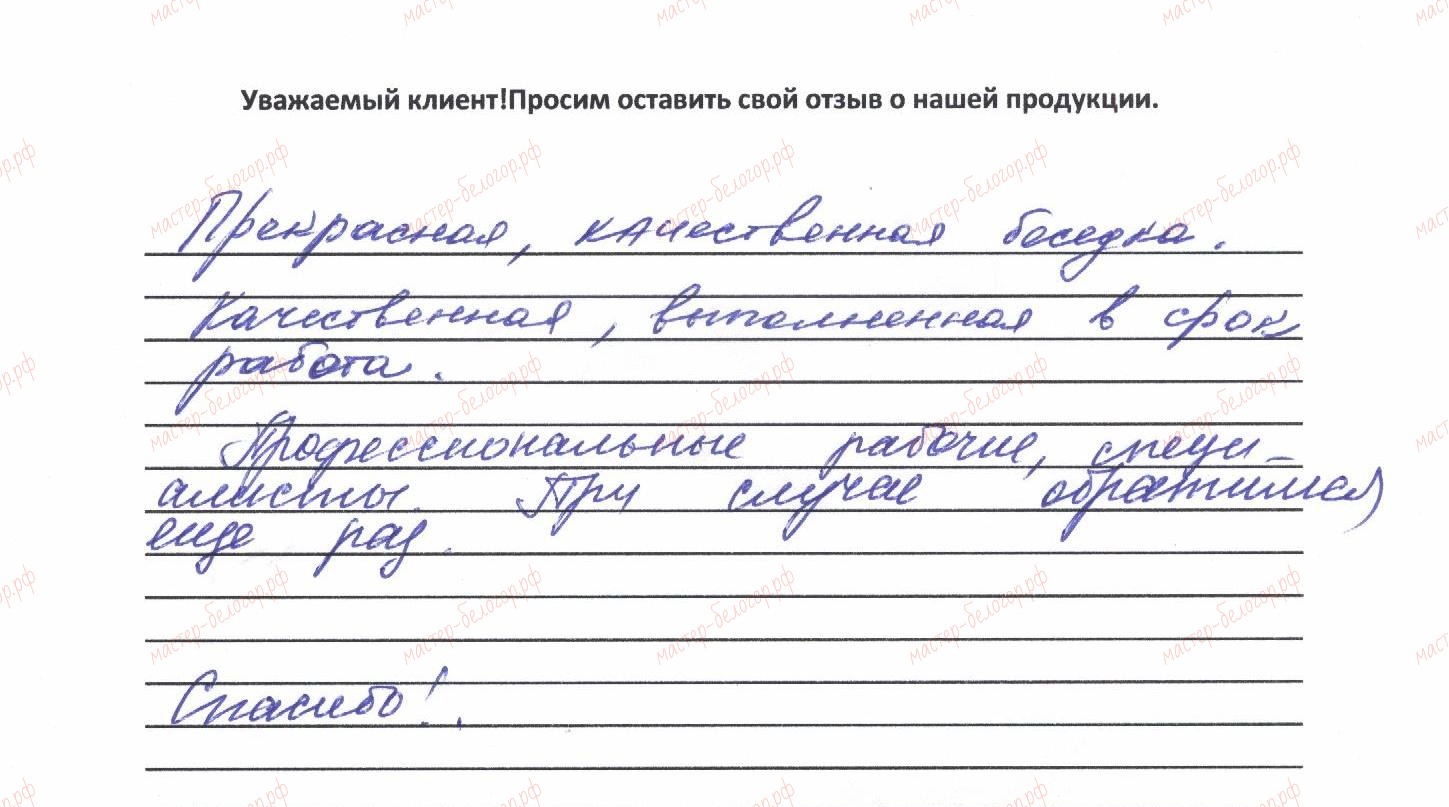 Уважаемый клиент!Просим оставить свой отзыв о нашей продукции.
Прекрасная, качественная беседка.
Качественная, выполненная в срок
работа.
Профессиональные рабочие, специ-
алисты. При случае обратимся)
еще раз.
Спасибо!
мастер-белогор.рф